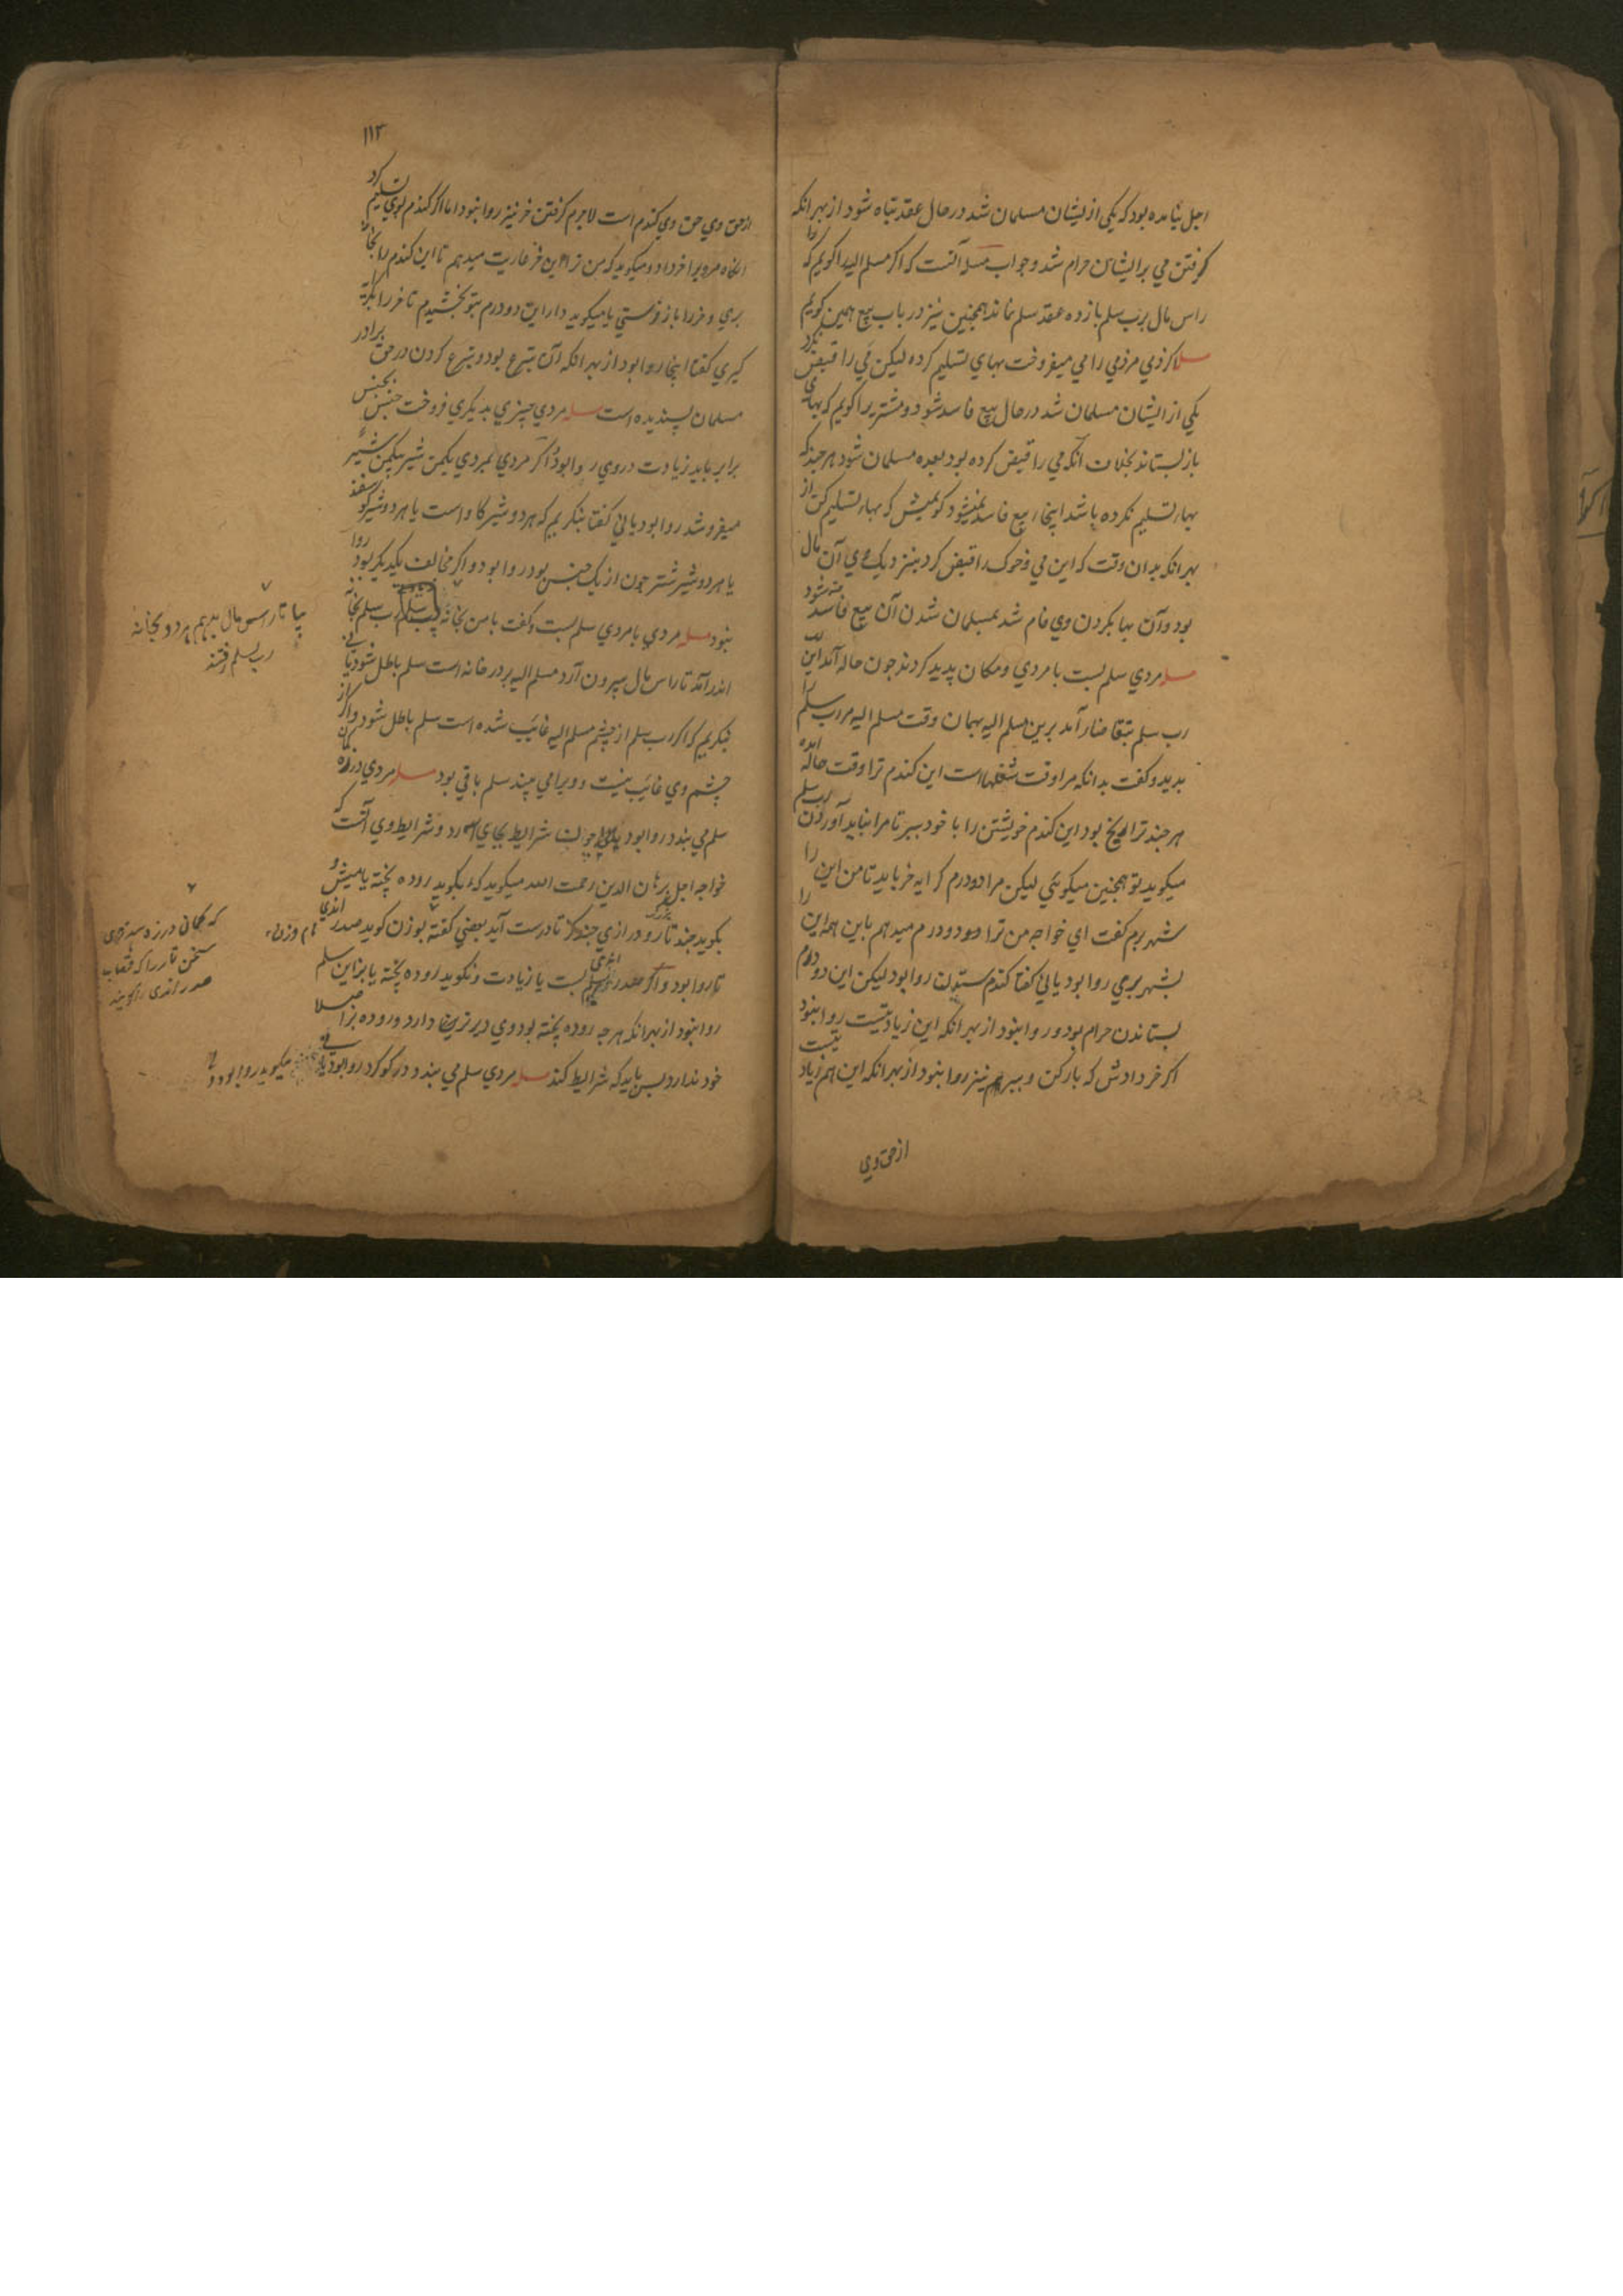 اجل نیامده بود که یکی ازیشان مسلمان شد در حال عقد تباه شود از بهر انکه
کرفتن می بر ایشان حرام شد و جواب مسله آنست که اکر مسلم الیه را کویم که
راس مال برب سلم باز ده عقد سلم نماند همچنین نیز در باب بیع همین کویم
مسله اکر ذمی مر ذمی را می میفروخت بهای تسلیم کرده لیکن می را قبض نکرد
یکی از ایشان مسلمان شد در حال بیع فاسد شود و مشتریرا کویم که بهای
باز بستاند بخلاف آنکه می را قبض کرده بود بعده مسلمان شود هر چند که
بها تسلیم نکرده باشد اینجا بیع فاسد نمیشود کویمش که بها تسلیم کن از
بهر انکه بدان وقت که این می و خوک را قبض کرد بنزدیک وی آن مال
بود و آن بها بکردن وی وام شد بمسلمان شدن آن بیع فاسد نشود
مسله مردی سلم بست با مردی و مکان پدید کردند چون حاله آمد این
رب سلم بتقاضا آمد برین مسلم الیه بهمان وقت مسلم الیه مر رب سلم را
بدید و کفت بدانکه مرا وقت شغلهااست این کندم ترا وقت حاله آمده
هر چند ترا بود این کندم خویشتن را با خود ببر تا مرا نباید آوردن رب سلم
میکوید تو همچنین میکوئی لیکن مرا دو درم کرایه خر باید تا من این را
شهر برم کفت ای خواجه من ترا دو درم میدهم باین همه این را
بشهر بری روا بود یا نی کفتا کندم ستدن روا بود لیکن این دو درم
بستاندن حرام بود و روا نبود از بهر انکه این زیادتیست روا نبود
اکر خر دادش که بار کن و ببر هم نیز روا نبود از بهر انکه این هم زیادتیست
از حق وی
۱۱۳
از حق وی حق وی کندم است لاجرم کرفتن خر نیز روا نبود اما اکر کندم بوی تسلیم کرد
انکاه مرویرا خر داد و میکوید که من ترا این خر عاریت میدهم تا این کندم را بخانه
بری و خر را باز فرستی یا میکوید دار این دو درم بتو بخشیدم تا خر را بکرایه
کیری کفتا اینجا روا بود از بهر انکه آن تبرع بود و تبرع کردن در حق برادر
مسلمان پسندیده است مسله مردی چیزی بدیکری فروخت جنس بجنس
برابر باید زیادت در وی روا بود اکر مردی بمردی یکمن شیر بیکمن شیر
میفروشد روا بود یا نی کفتا بنکریم که هر دو شیر کاو است یا هر دو شیر کوسفند
یا هر دو شیر شتر چون از یک جنس بود روا بود و اکر مخالف یکدیکر بود روا
نبود مسله مردی با مردی سلم بست و کفت با من بخانه رب سلم بخانه
اندر آمد تا راس مال بیرون آرد مسلم الیه بر در خانه است سلم باطل شود یا نی
بنکریم که اکر رب سلم از چشم مسلم الیه غائب شده است سلم باطل شود و اکر از
چشم وی غائب نیست و ویرا می بیند سلم باقی بود مسله مردی در زه کمان
سلم می بندد روا بود چون شرایط بجای آرد و شرایط وی آنست که
خواجه اجل برهان الدین رحمت الله میکوید که بکوید روده پخته یا میش و
بکوید چند تار و درازی چند کز تا درست آید بعضی کفته بوزن کوید صدر اندی ام وزن
تا روا بود و اکر صدر اندی سلم بست یا زیادت و نکوید روده پخته یا بز این سلم
روا نبود از بهر انکه هر چه روده پخته بود وی دیرترین دارد و روده بز اصلا
خود ندارد پس باید که شرایط کند مسله مردی سلم می بندد در کوکرد روا بود یا نی میکوید روا بود
بیا تا راس مال بدهم هر دو بخانه
رب سلم رفتند
که کمانی در زه
سخن تار را که قصاب
صدر اندی را کویند